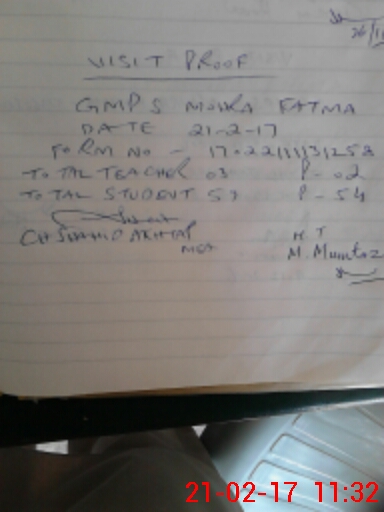 26/11
VISIT PROOF
GMPS MOHRA FATMA
DATE 21-2-17
FORM NO -
TOTAL TEACHER 03 P-02
TOTAL STUDENT 57 P-54
CH SHAHID AKHTAR H T
MEA M. Mumtaz
21-02-17 11:32